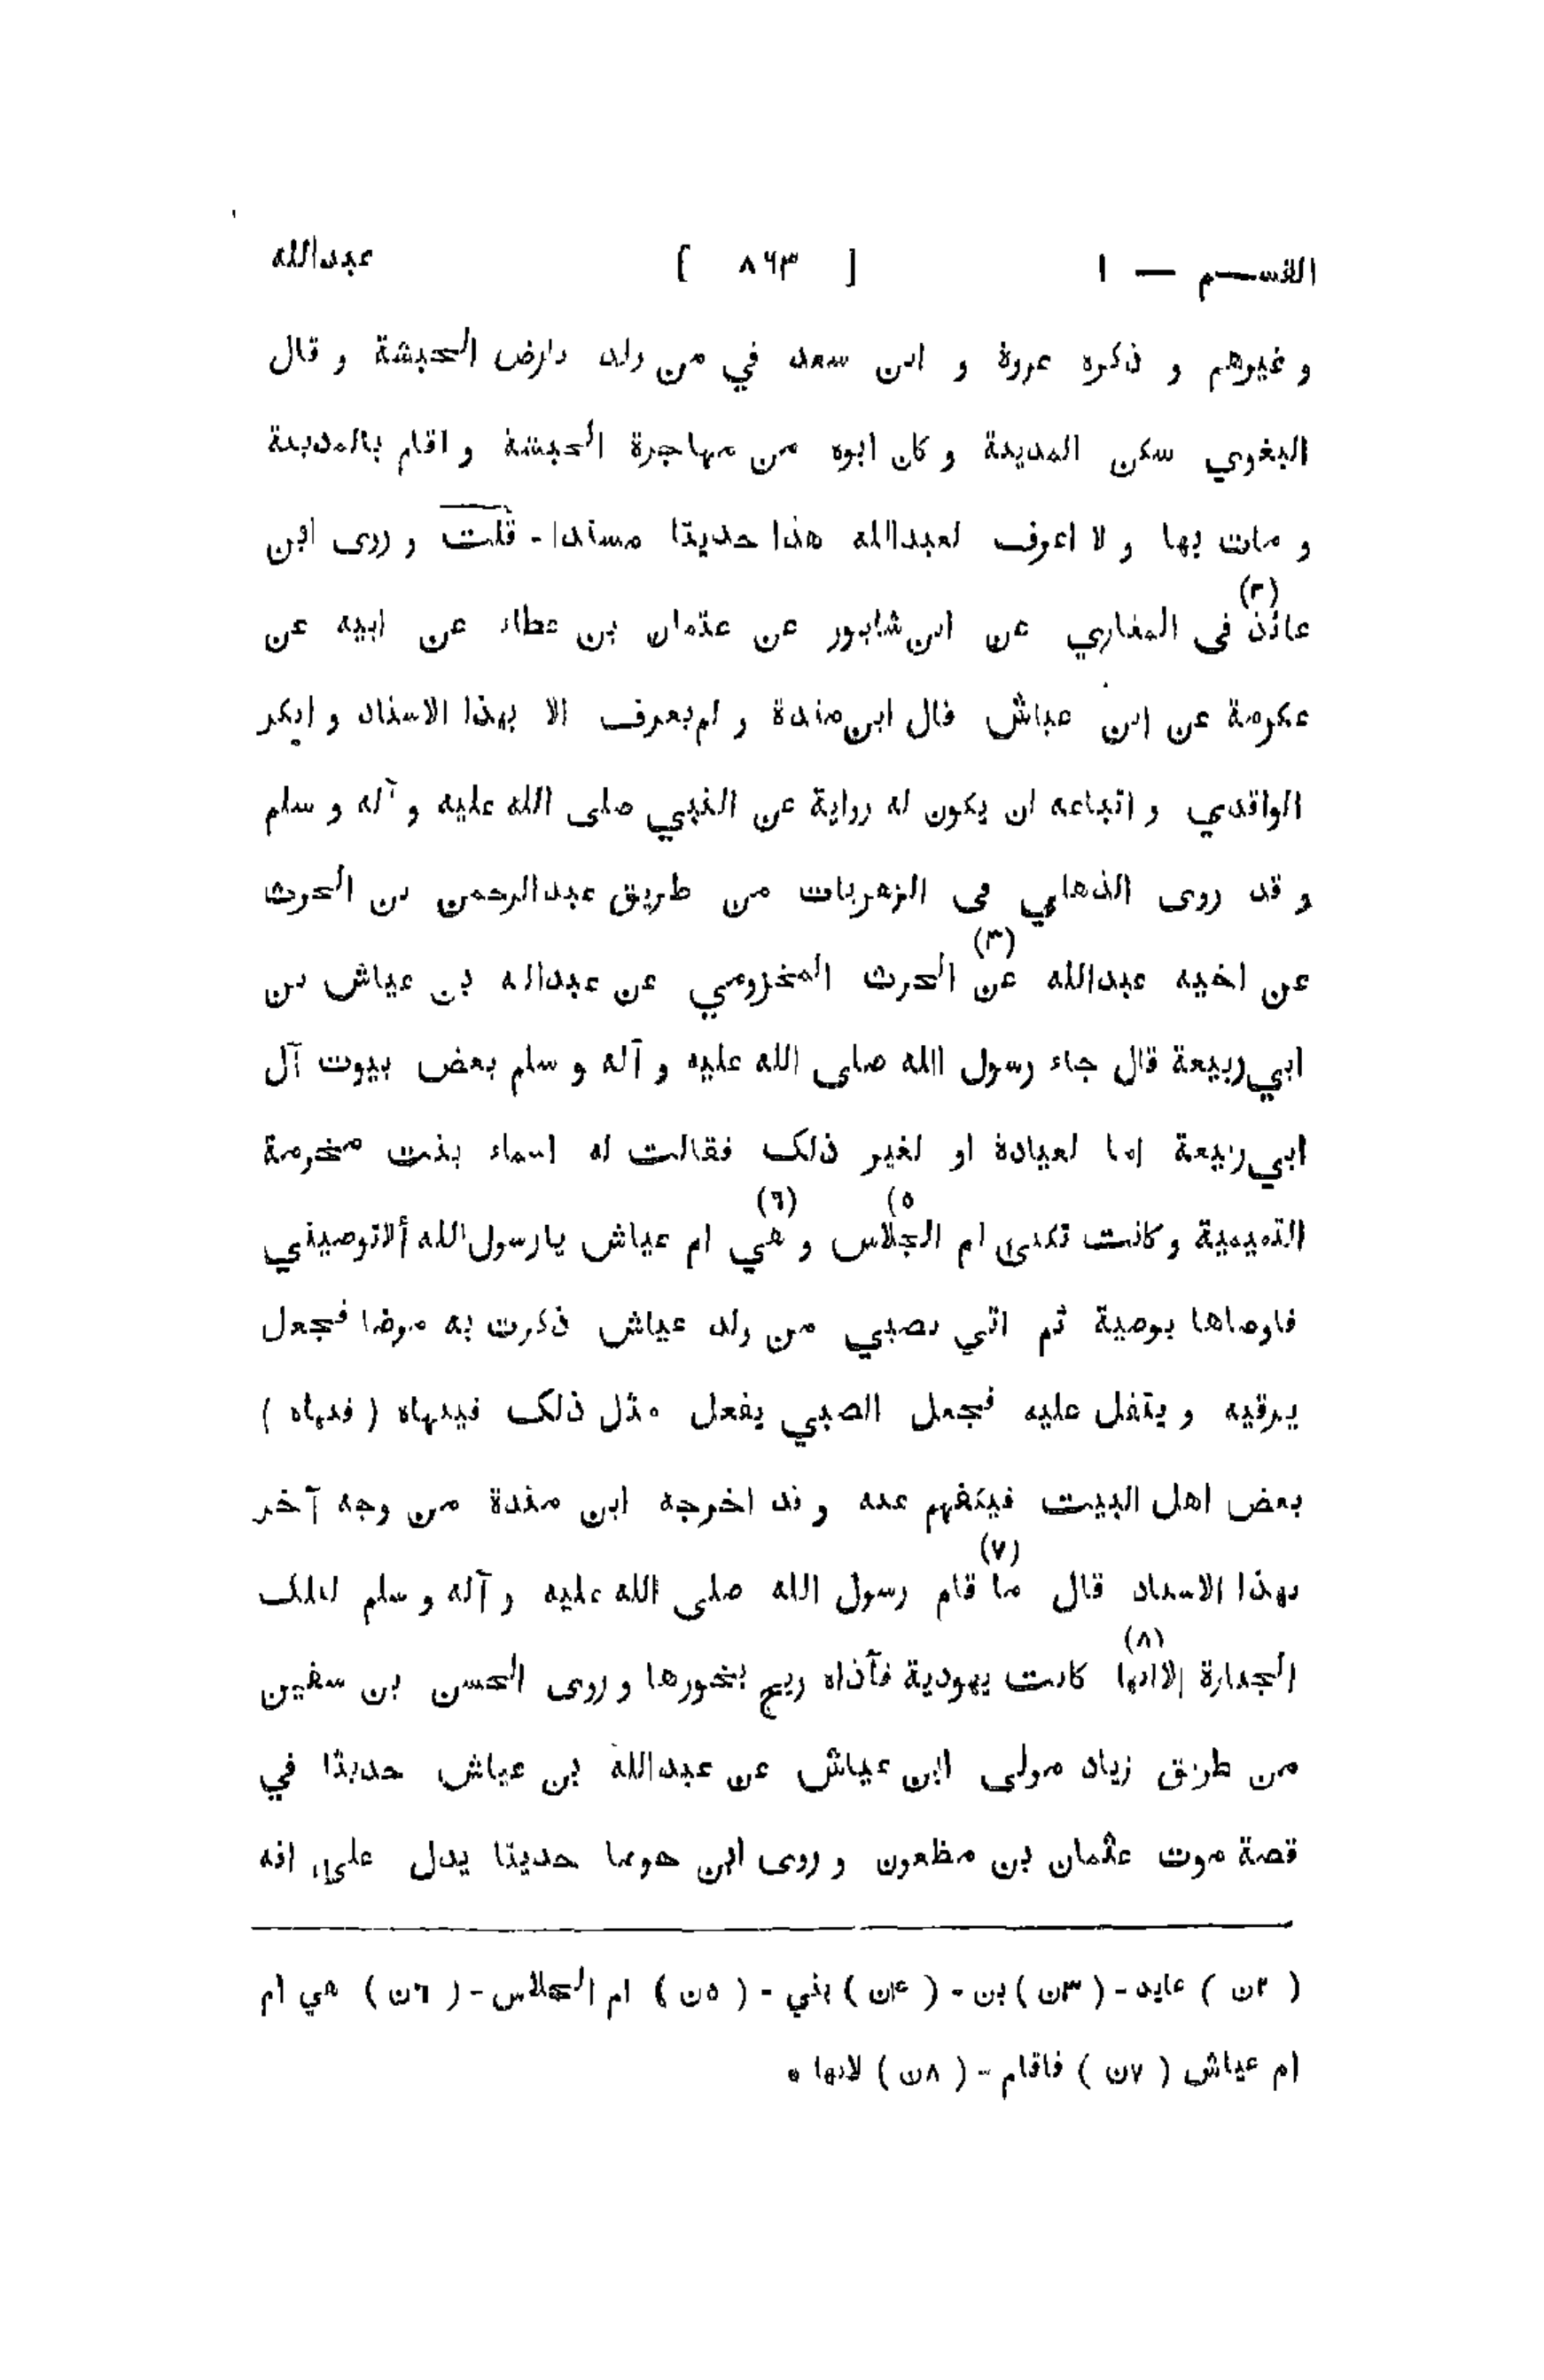 القسم — ١ [ ٨٦٣ ] عبدالله
و غيرهم و ذكره عروة و ابن سعد في من ولد بارض الحبشة و قال
البغوي سكن المدينة و كان ابوه من مهاجرة الحبشة و اقام بالمدينة
و مات بها و لا اعرف لعبدالله هذا حديثا مسندا - قلت و روى ابن
عائذ (٢) فى المغازي عن ابن شابور عن عثمان بن عطاء عن ابيه عن
عكرمة عن ابن عباش قال ابن مندة و لم يعرف الا بهذا الاسناد و انكر
الواقدي و اتباعه ان يكون له رواية عن النبي صلى الله عليه و آله و سلم
و قد روى الذهلي فى الزهريات من طريق عبدالرحمن بن الحرث
عن اخيه عبدالله عن (٣) الحرث المخزومي عن عبداله بن عياش بن
ابي ربيعة قال جاء رسول الله صلى الله عليه و آله و سلم بعض بيوت آل
ابي ربيعة إما لعيادة او لغير ذلك فقالت له اسماء بنت مخرمة
التميمية و كانت تكنى ام الجلاس (٥) و هي (٦) ام عياش يا رسول الله ألا توصيني
فاوصاها بوصية ثم اتي بصبي من ولد عياش ذكرت به مرضا فجعل
يرقيه و يتفل عليه فجعل الصبي يفعل مثل ذلك فينهاه ( فنهاه )
بعض اهل البيت فيكفهم عنه و قد اخرجه ابن مندة من وجه آخر
بهذا الاسناد قال ما قام (٧) رسول الله صلى الله عليه و آله و سلم لتلك
الجنازة إلا انها (٨) كانت يهودية فآذاه ريح بخورها و روى الحسن بن سفين
من طريق زياد مولى ابن عياش عن عبدالله بن عياش حديثا في
قصة موت عثمان بن مظعون و روى ابن جوصا حديثا يدل على انه
( ٢ن ) عايد - ( ٣ن ) بن - ( ۴ن ) بني - ( ٥ن ) ام الحلاس - ( ٦ن ) هي ام
ام عياش ( ٧ن ) فاقام - ( ٨ن ) لانها *